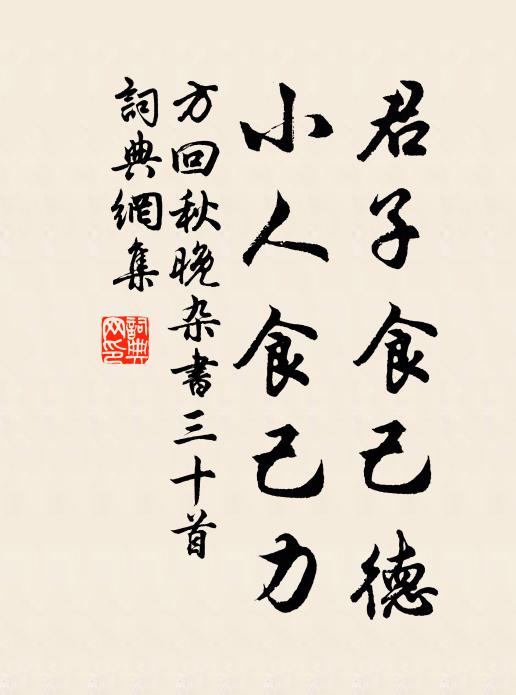 君子食己德
小人食己力
方回秋晚杂書三十首
詞典網集
詞典网印